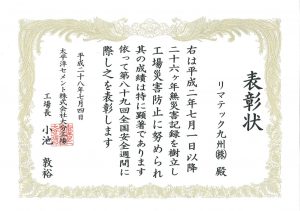 表彰状
リマテック九州㈱ 殿
右は平成二年七月一日以降
二十六ヶ年無災害記録を樹立し
工場災害防止に努められ
其の成績は特に顕著であります
依って第八十九回全国安全週間に
際し之を表彰します
平成二十八年七月四日
太平洋セメント株式会社大分工場
工場長 小池 敦裕